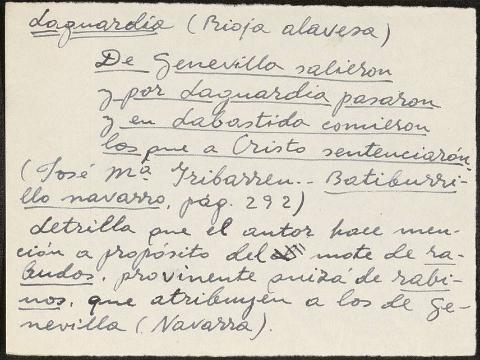 Laguardia (Rioja alavesa)
De Genevilla salieron
y por Laguardia pasaron
y en Labastida comieron
los que a Cristo sentenciarón.
(José Mª Iribarren.. Batiburri-
llo navarro, pág. 292)
detrilla que el autor hace men-
ción a propósito del mote de ra-
budos, provinente quizá de rabi-
nos, que atribuyen a los de Ge-
nevilla (Navarra).